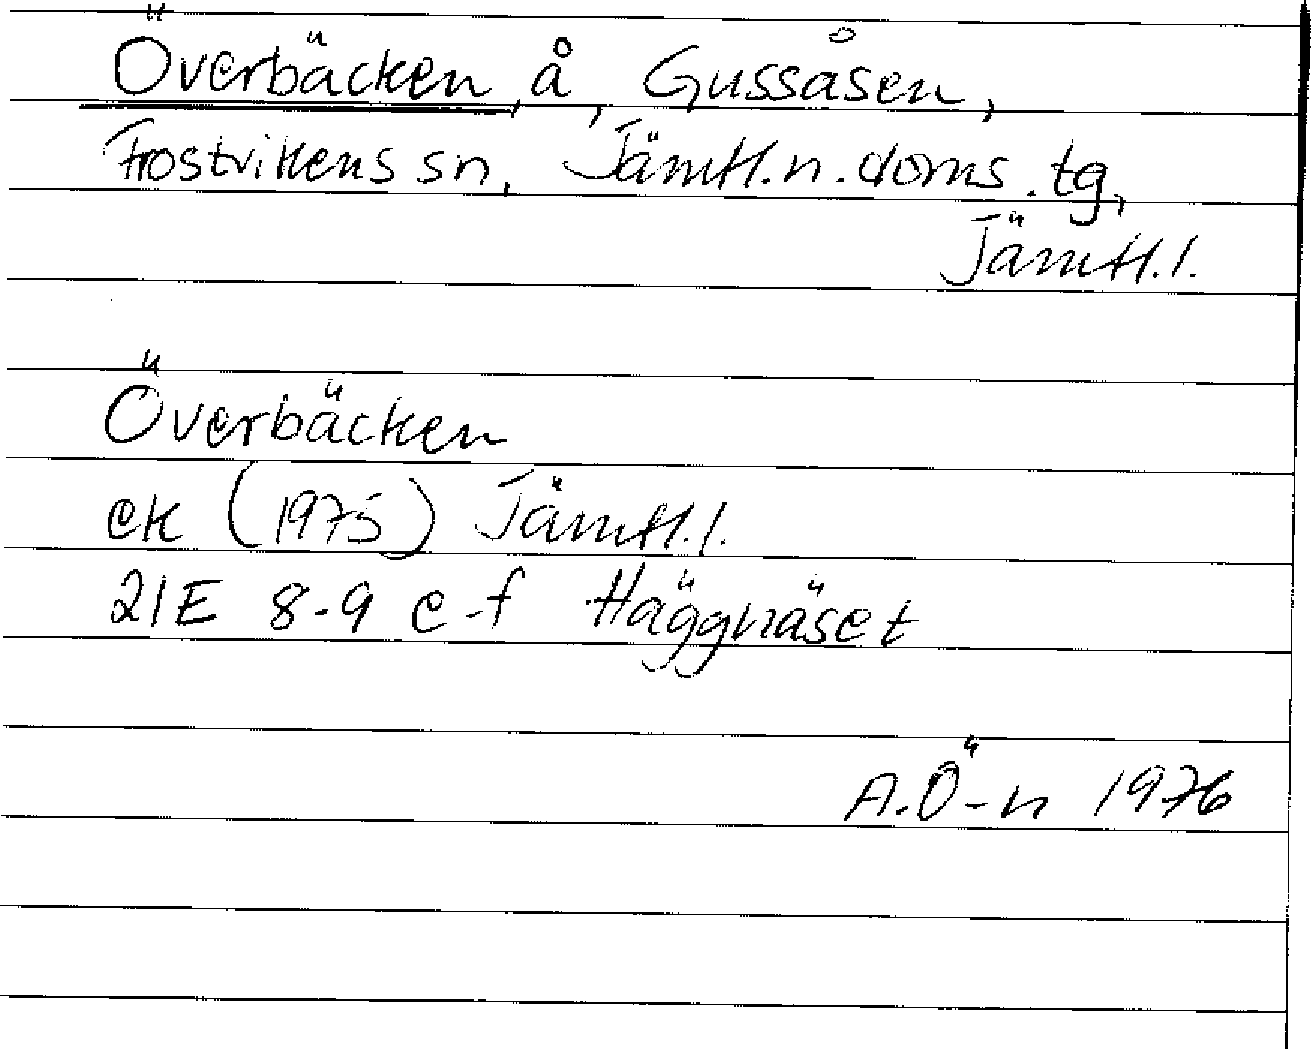 Överbäcken, å, Gussåsen,
Frostvikens sn, Jämtl. n. doms. tg,
Jämtl. l.
Överbäcken
ek (1975) Jämtl. l.
21E 8-9 e-f Häggnäset
A.Ö-n 1976